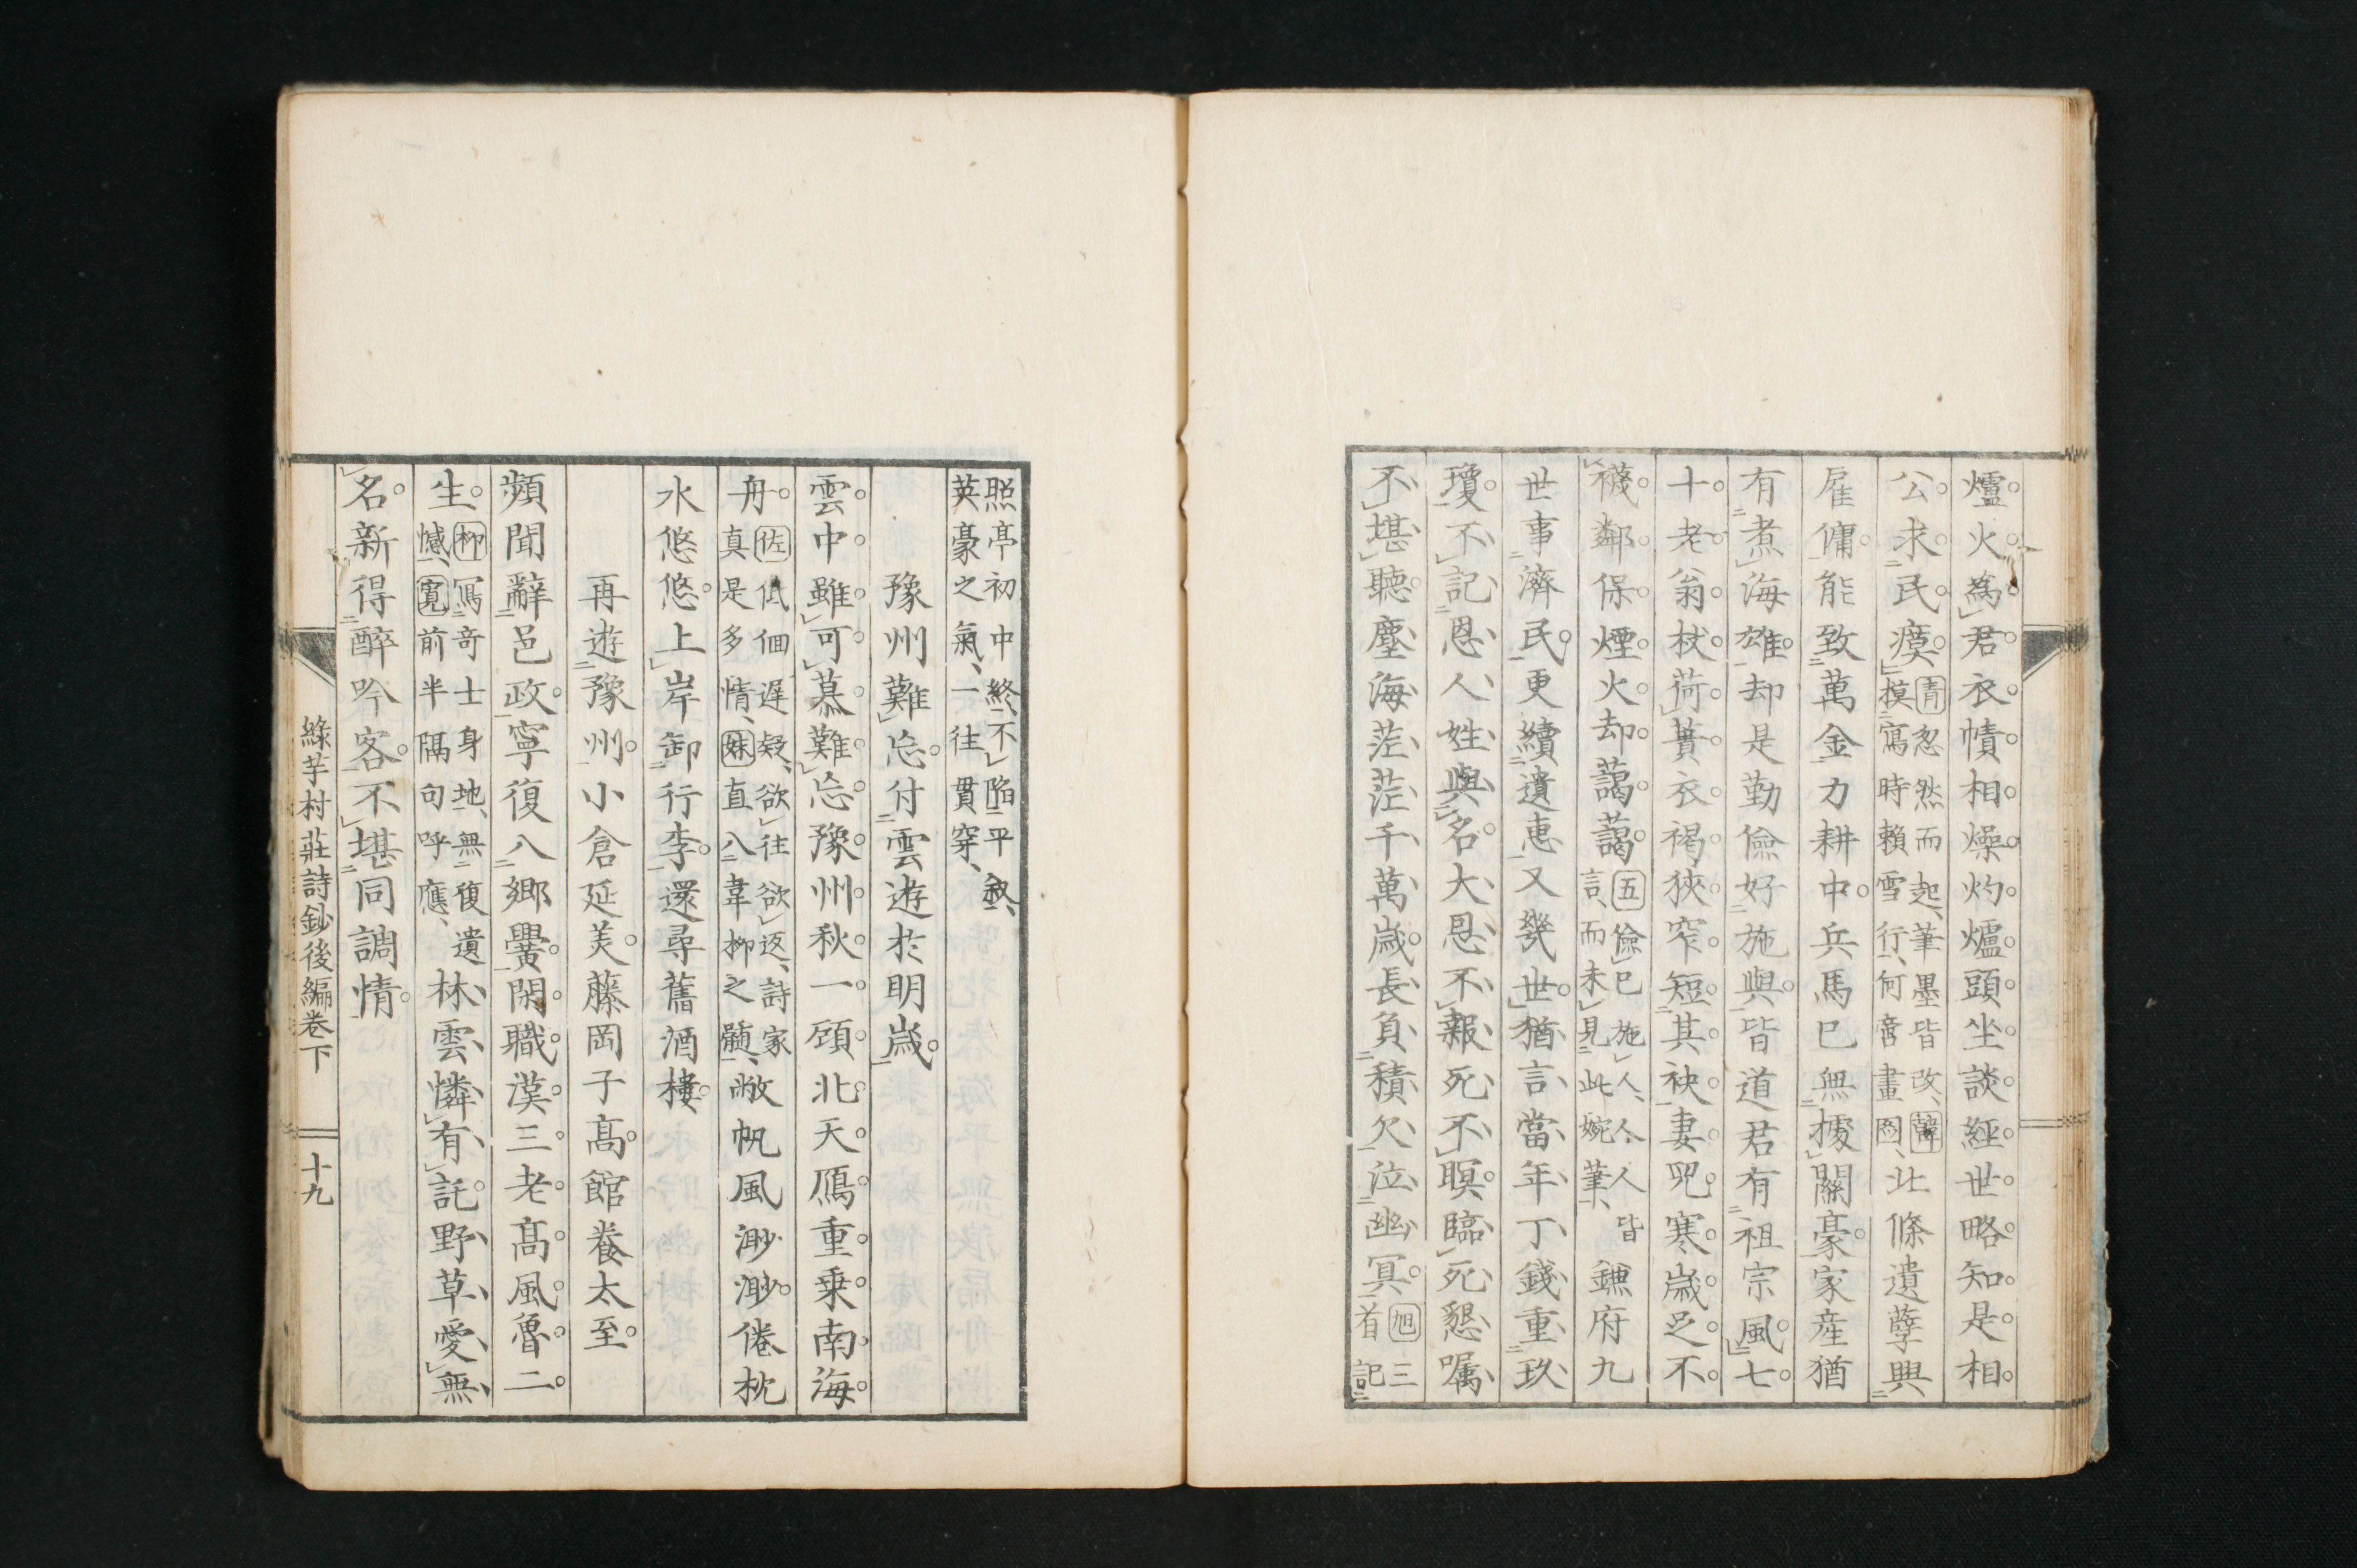 爐火為君衣幘相燥灼爐頭坐談經世略知是相
公求民瘼青忽然而起筆墨皆改韓
摸寫時賴雪行何啻畫圖北條遺孽興
雇傭能致萬金力耕中兵馬已無擾關豪家産猶
有煮海雄却是勤儉好施與皆道君有祖宗風七
十老翁杖荷蕢衣褐狹窄短其袂妻兒寒歲足不
襪鄰保煙火却藹藹五儉已施人人人皆
言而未見此婉筆鎌府九
世事濟民更續遺惠又幾世猶言當年丁錢重玖
瓊不記恩人姓與名大恩不報死不瞑臨死懇囑
不堪聽塵海茫茫千萬歲長負積欠泣幽冥旭三
首記
照亭初中終不陷平敘
英豪之氣一往貫穿
豫州難忘付雲遊於明歲
雲中雖可慕難忘豫州秋一頋北天鴈重乗南海
舟佐低佪遅疑欲往欲返詩家
真是多情妹直入韋柳之髄敝帆風渺渺倦枕
水悠悠上岸卸行李還尋舊酒樓
再遊豫州小倉延美藤岡子髙館養太至
頻聞辭邑政寧復入郷黌閑職漢三老髙風魯二
生柳寫奇士身地無復遺
憾寛前半隔句呼應林雲憐有託野草愛無
名新得醉吟客不堪同調情
綠芋村莊詩鈔後編卷下
十九